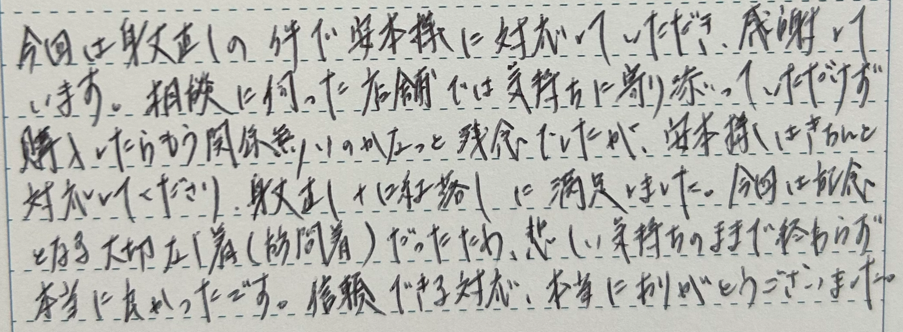 今回は身丈直しの件で安本様に対応していただき、感謝して
います。相談に伺った店舗では気持ちに寄り添っていただけず
購入したらもう関係無いのかなっと残念でしたが、安本様はきちんと
対応してくださり、身丈直し+口紅落しに満足しました。今回は記念
となる大切な1着(訪問着)だったため、悲しい気持ちのままで終わらず
本当に良かったです。信頼できる対応、本当にありがとうございました。